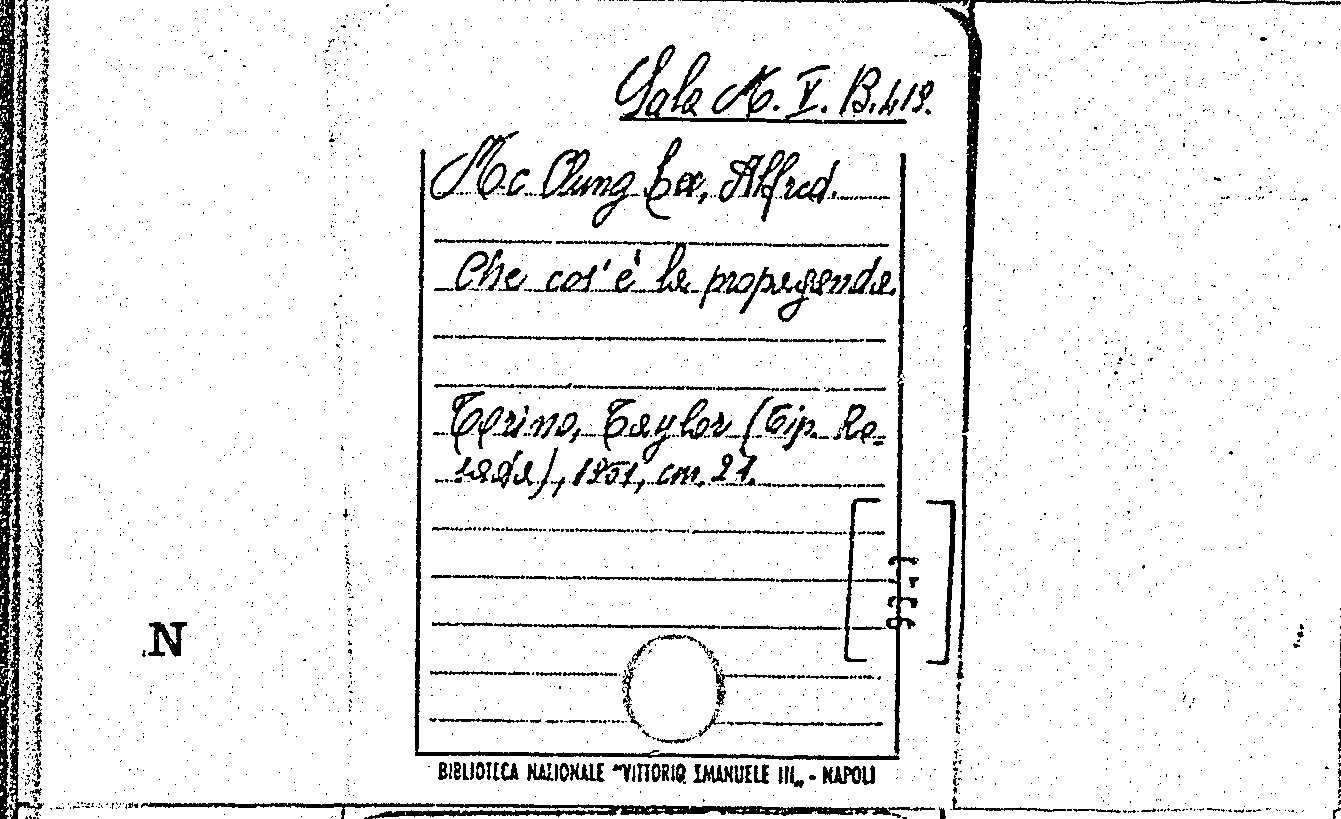 Sala M. V. B. 419.
Mc Clung Lee, Alfred.
Che cos'è la propaganda.
Torino, Taylor (Tip. Ra=
), 1951, cm. 21.
N
BIBLIOTECA NAZIONALE "VITTORIO EMANUELE III„ - NAPOLI